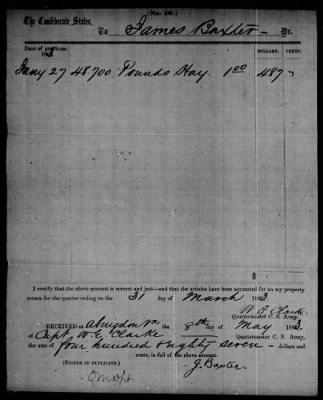 (No. 22.)
The Confederate States,
To James Baxter — Dr.
Date of purchase. DOLLARS. CENTS.
186
Jany 27 48,700 Pounds Hay 1 00 487 "
$
I certify that the above account is correct and just—and that the articles have been accounted for on my property
return for the quarter ending on the 31 day of March 1863.
W. G. Clarke
Quartermaster C. S. Army.
RECEIVED at Abingdon Va the 8th day of May 1863,
of Capt W G Clarke Quartermaster C. S. Army,
the sum of four hundred & eighty seven — dollars and
cents, in full of the above account.
(SIGNED IN DUPLICATE.) J. Baxter